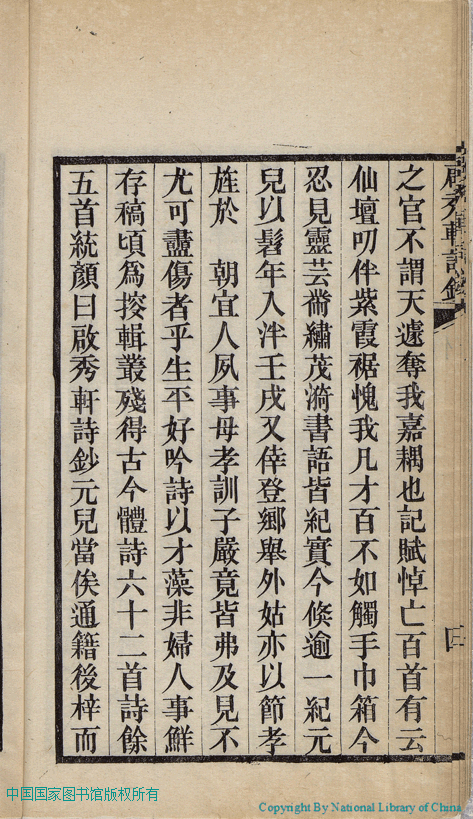 之官不謂天遽奪我嘉耦也記賦悼亡百首有云
仙壇叨伴紫霞裾愧我凡才百不如觸手巾箱今
忍見靈芸黹繡茂漪書語皆紀實今倏逾一紀元
兒以髫年入泮壬戌又倖登鄉舉外姑亦以節孝
旌於　朝宜人夙事母孝訓子嚴竟皆弗及見不
尤可盡傷者乎生平好吟詩以才藻非婦人事鮮
存稿頃爲挍輯叢殘得古今體詩六十二首詩餘
五首統顏曰啟秀軒詩鈔元兒當俟通籍後梓而
啟秀軒詩鈔
中国国家图书馆版权所有
Copyright By National Library of China